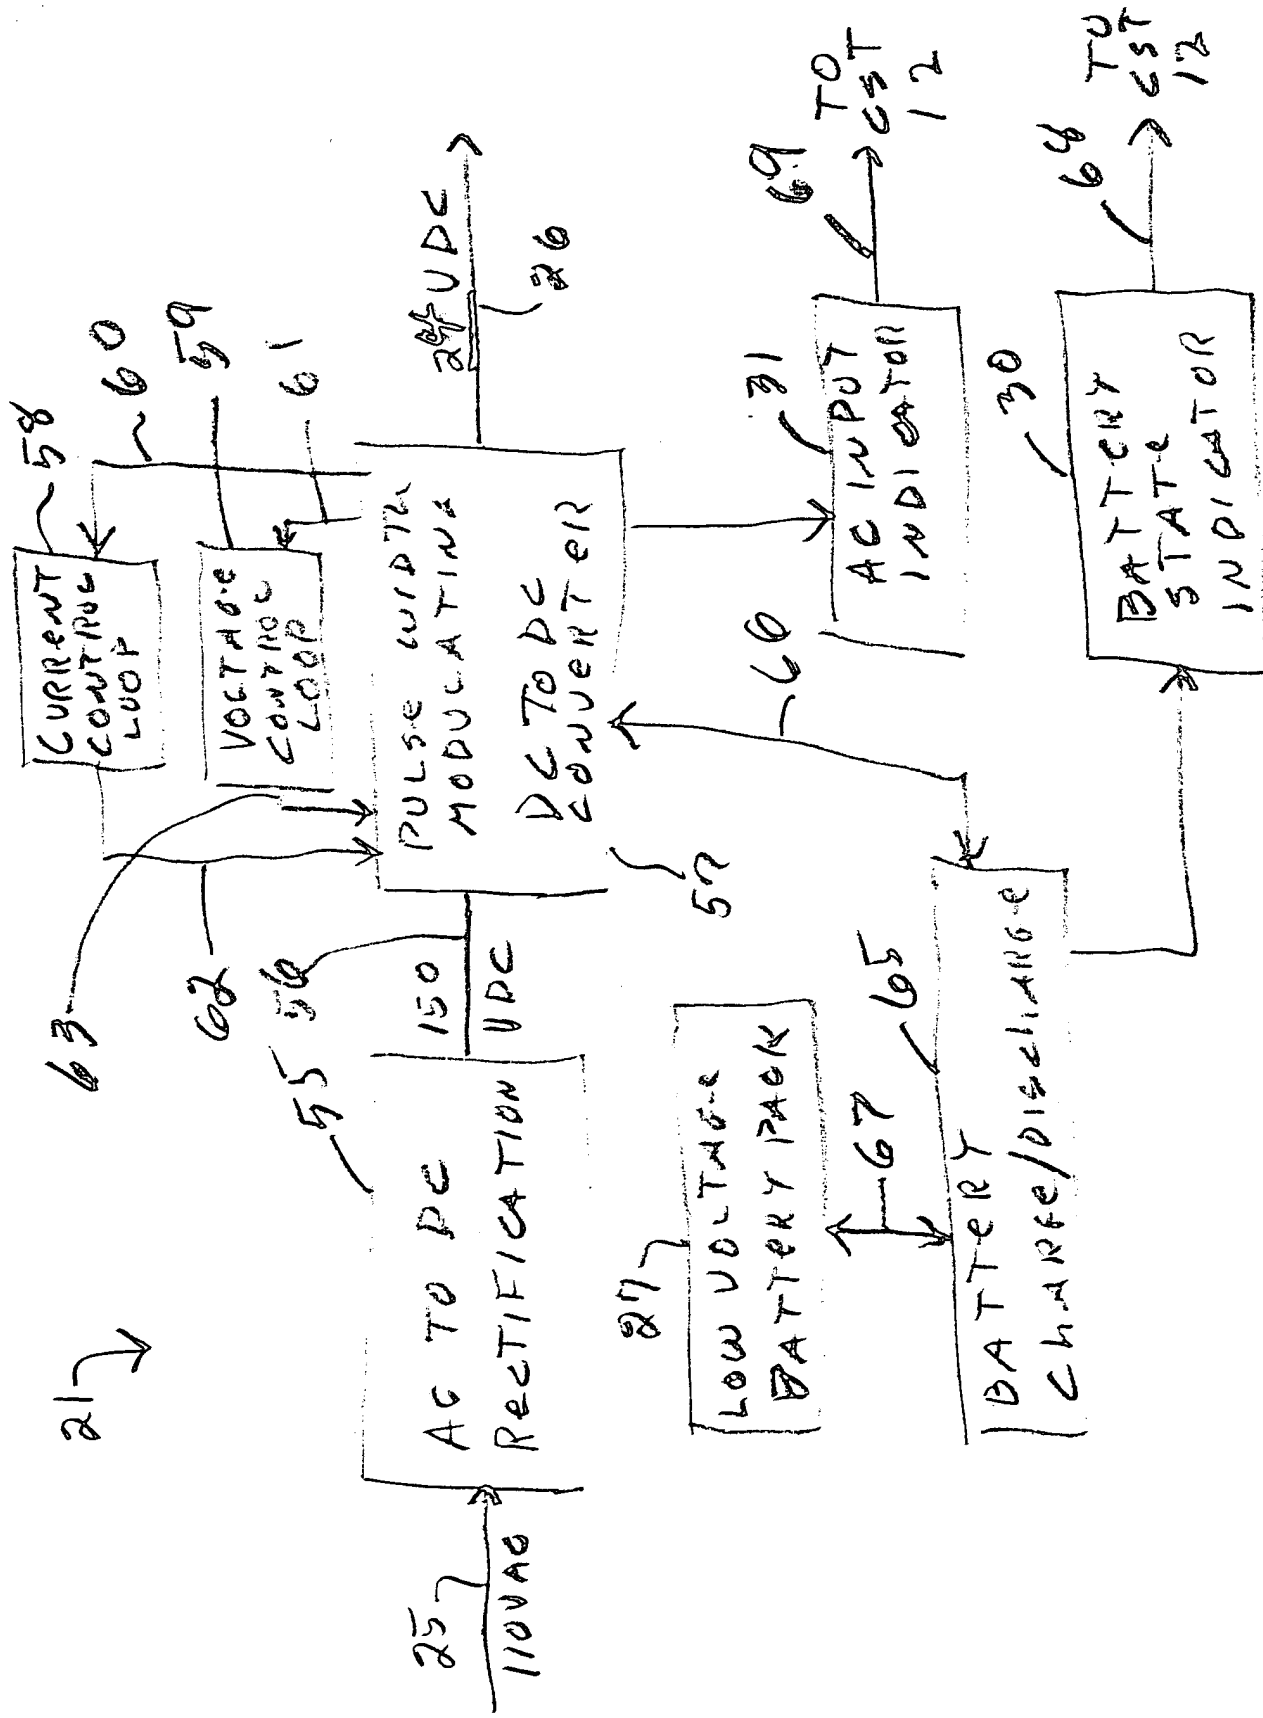 21
25
110 VAC
55
AC TO DC
RECTIFICATION
56
150
VDC
63
62
CURRENT
CONTROL
LOOP
58
60
VOLTAGE
CONTROL
LOOP
59
61
PULSE WIDTH
MODULATING
DC TO DC
CONVERTER
57
24 VDC
26
27
LOW VOLTAGE
BATTERY PACK
67
65
BATTERY
ChARGE/DISChARGE
66
31
AC INPUT
INDICATOR
69
TO
CST
12
30
BATTERY
STATE
INDICATOR
68
TO
CST
12